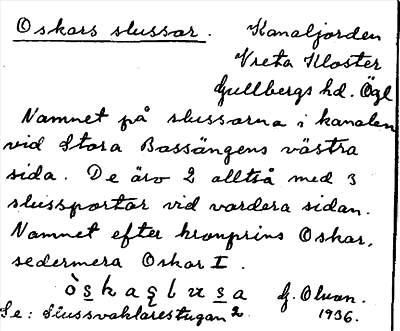 Oskars slussar. Kanaljorden
Vreta Kloster
Gullbergs hd. Ögl
Namnet på slussarna i kanalen
vid Stora Bassängens västra
sida. De äro 2 alltså med 3
slussportar vid vardera sidan.
Namnet efter kronprins Oskar,
sedermera Oskar I.
G. Olson.
Se: Slussvaktarestugan 2 1936.